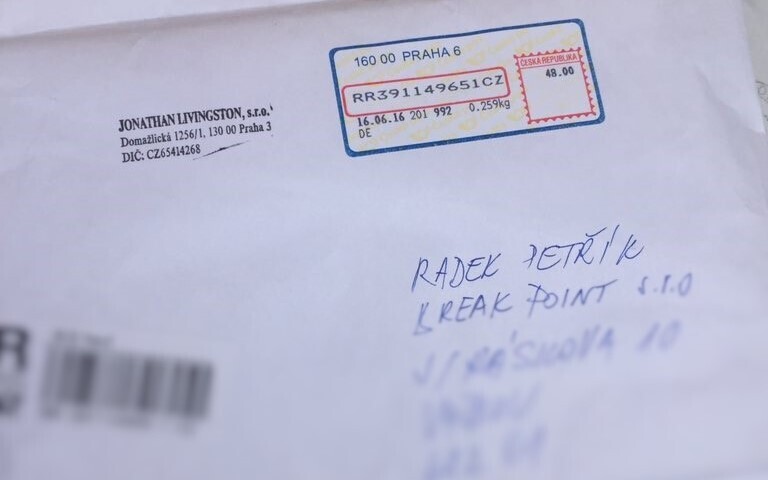 160 00 PRAHA 6
ČESKÁ REPUBLIKA
48.00
RR391149651CZ
16.06.16 201 992 0.259kg
DE
JONATHAN LIVINGSTON, s.r.o.
Domažlická 1256/1, 130 00 Praha 3
DIČ: CZ65414268
RADEK PETŘÍK
BREAK POINT s.r.o
10
R